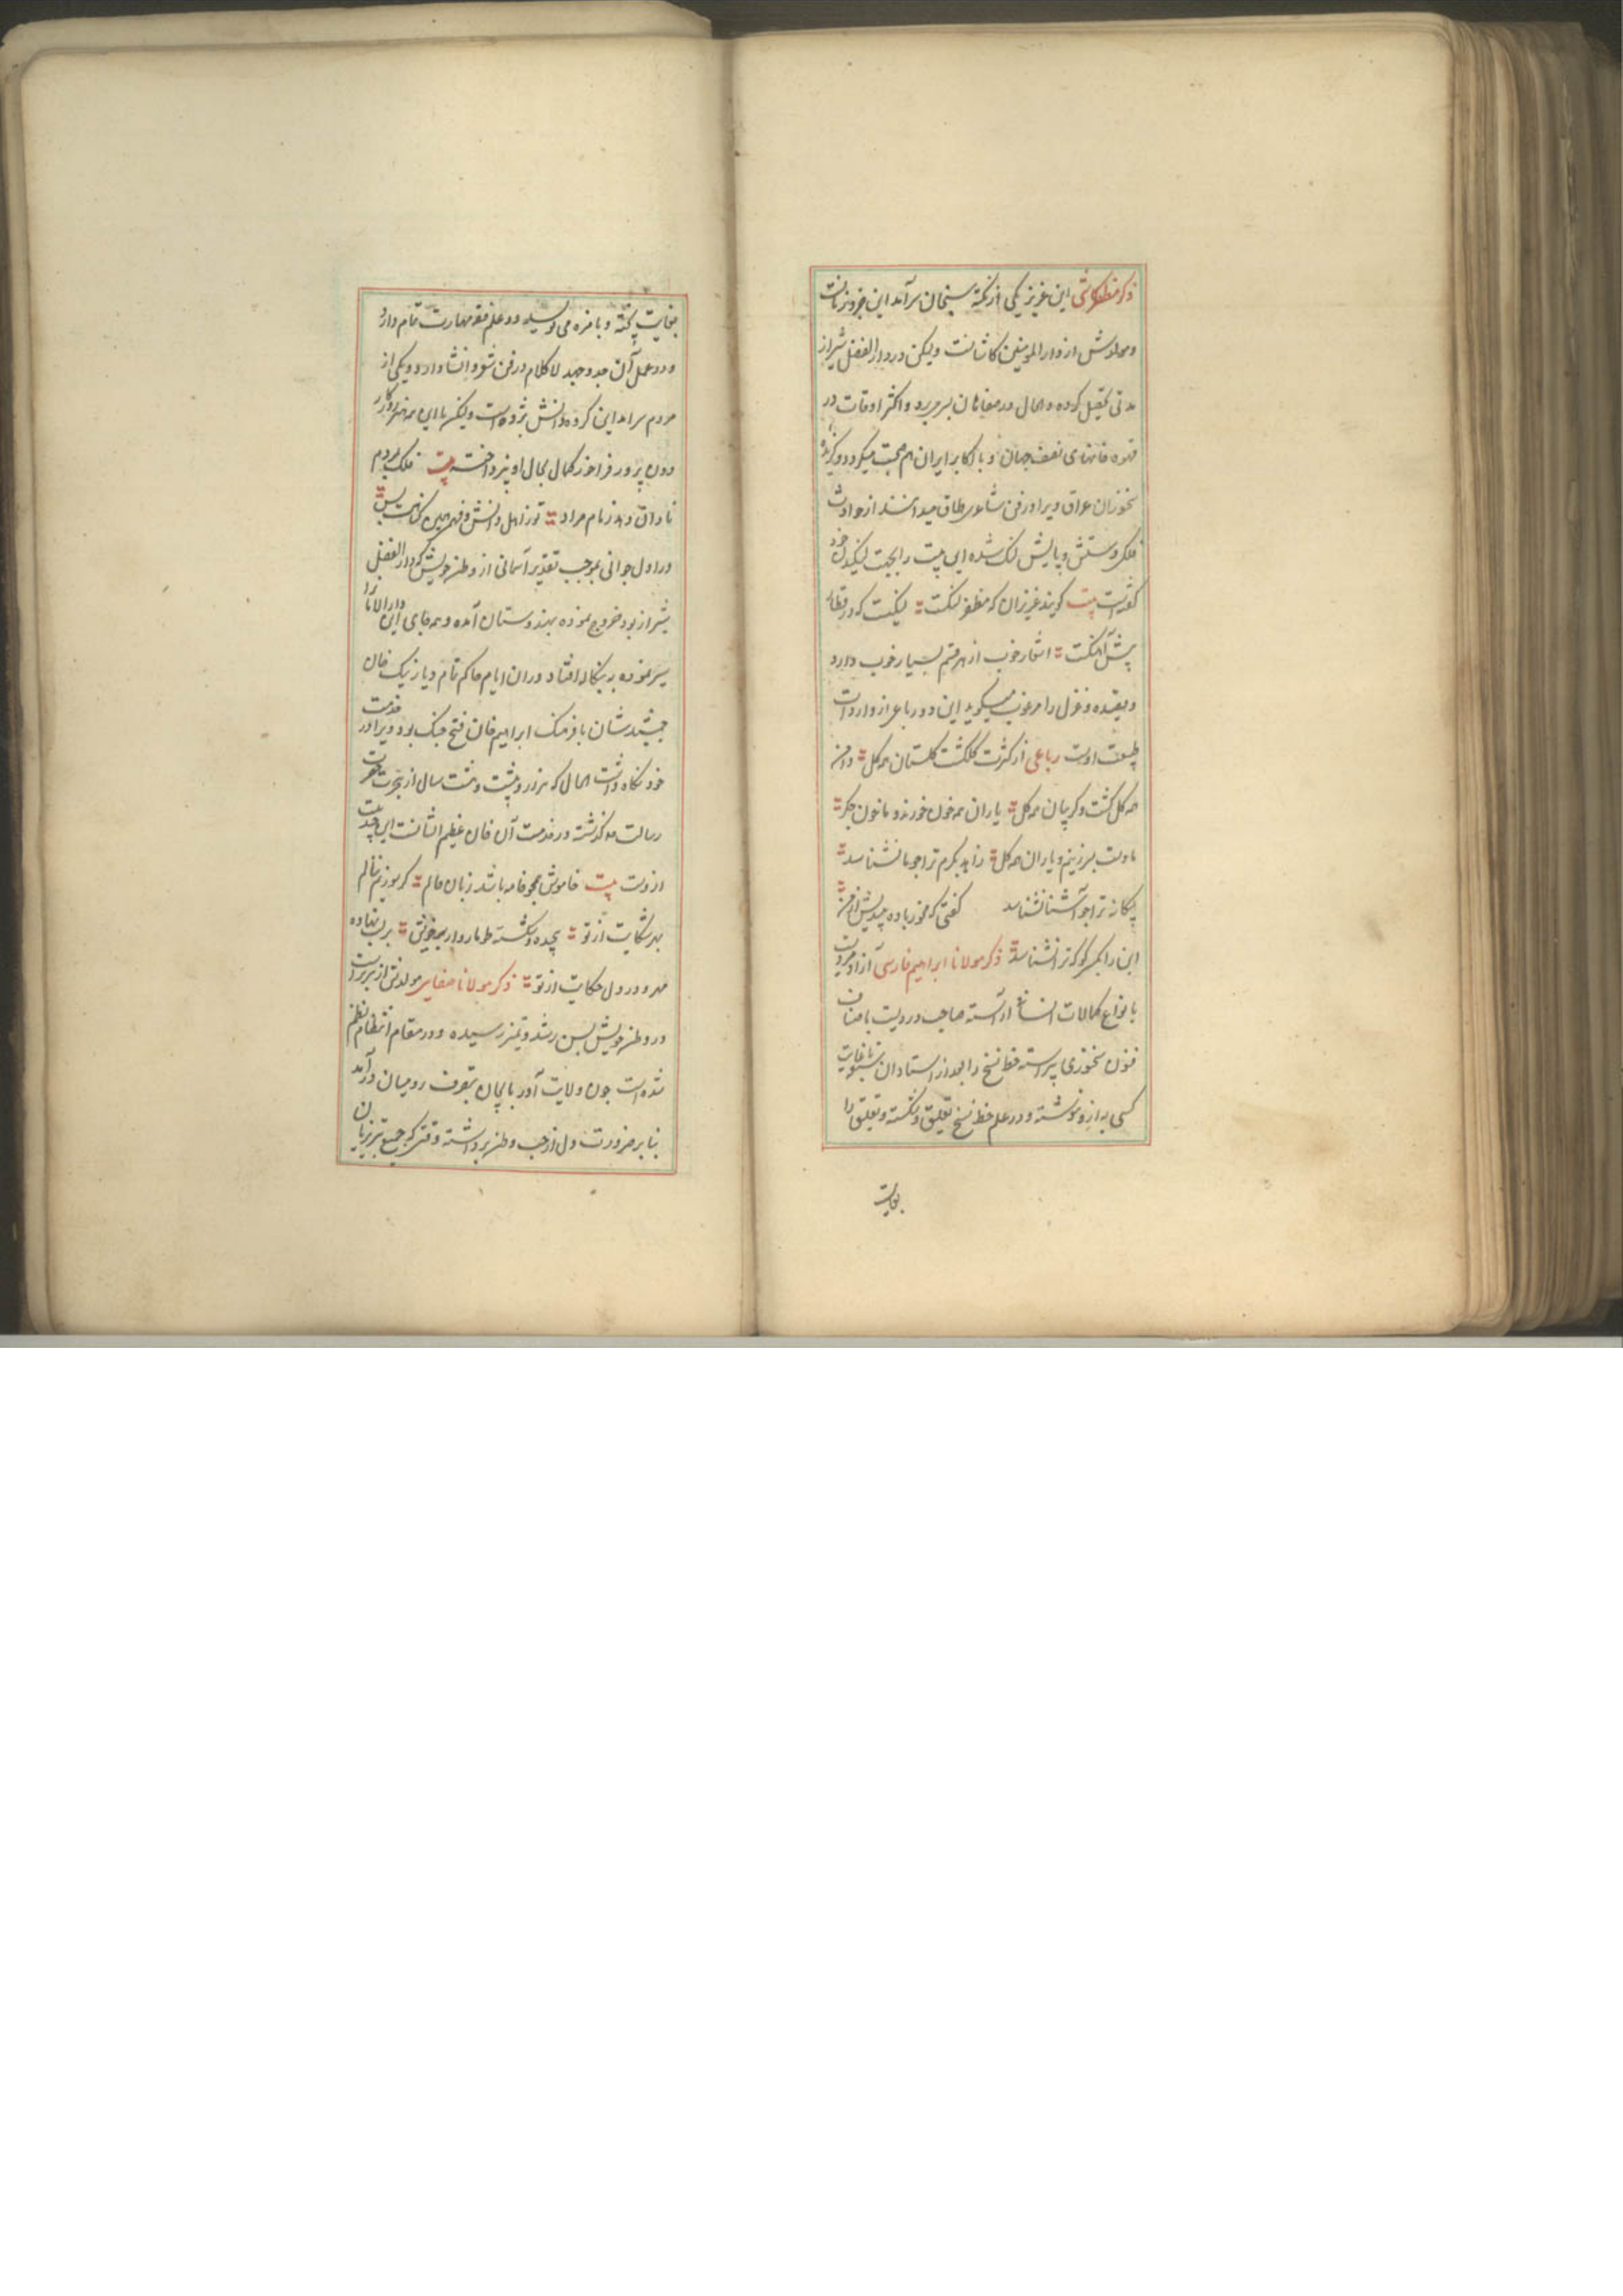 ذکر مظفر کاشی این عزیز یکی از نکته سنجان سرآمد این جزو زمانست
ومولدش از دار المومنین کاشانست ولیکن در دار الفضل شیراز
مدتی تحصیل کرده والحال در صفاهان بسر میبرد و اکثر اوقات در
قهوه خانهای نصف جهان و با اکابر ایران هم صحبت میگردد
سخنوران عراق ویرا در فن شاعری طاق میدانند از حوادث
فلکی دستش و پایش لنگ شده این بیت را بجهت لنگیدن خود
گفته است بیت گویند عزیزان که مظفر لنگست لنگست که در قطار
پیش آهنگست اشعار خوب از هر قسم بسیار خوب دارد
وقصیده و غزل را مرغوب میگوید این دو رباعی از واردات
طبیعت اوست رباعی از کثرت گلگشت گلستان همه گل دامن
همه گل گشت و گریبان همه گل یاران همه خون خورند و ما خون جگر
ما دست بر زنیم و یاران همه گل زاهد بکرم ترا چو ما نشناسد
بیگانه ترا چو آشنا نشناسد گفتی که مخور باده
این را بکسی گو که ترا نشناسد ذکر مولانا ابراهیم فارسی آزاد مردیست
بانواع کمالات انسانی آراسته صاحب دردیست باصناف
فنون سخنوری پیراسته خط نسخ را بعد از استادان
کسی به ازو ننوشته و در علم خط نسخ تعلیق و شکسته و تعلیق را
بغایت
بغایت پخته و بامزه می نویسد و در علم فقه مهارت تمام دارد
ودر عمل آن جد وجهد لاکلام در فن شعر و انشا دارد و یکی از
مردم سرآمد این گروه دانش پژوه است ولیکن با این همه هنر روزگار
دون پرور فراخور کمال بحال او نپرداخته بیت فلک بمردم
نادان دهد زمام مراد تو ز اهل دانش و فضلی همین گناهت بس
در اول جوانی بموجب تقدیر آسمانی از وطن خویش که دار الفضل
شیراز بود خروج نموده بهندوستان آمده و همه جای این دار الامانرا
سیر نموده به بنگاله افتاد در ان ایام حاکم تام دیار نیک خان
جمشید نشان با فرهنگ ابراهیم خان فتح جنگ بود ویرا در خدمت
خود نگاه داشت الحال که هزار و بیست و هشت سال از هجرت حضرت
رسالت صلعم گذشته در خدمت آن خان عظیم الشانست این چند بیت
ازوست بیت خاموش همچو خامه باشد زبان حالم گر بوزیم نالم
بهر شکایت از تو پیچیده و شکسته طوماروار بر خویش بر لب نهاده
مهر و در دل حکایت از تو ذکر مولانا صفایی مولدش از تبریزست
در وطن خویش بسن رشد و تمیز رسیده و در مقام انتظام نظم
شده است چون ولایت آذربایجان بتصرف رومیان درآمد
بنابر ضرورت دل از حب وطن برداشته وقتی که جمیع تبریزیان